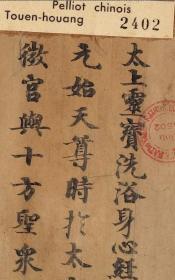 Pelliot chinois
Touen-houang 2402
太上靈寶洗浴身心經
元始天尊時於太
徵官與十方聖衆